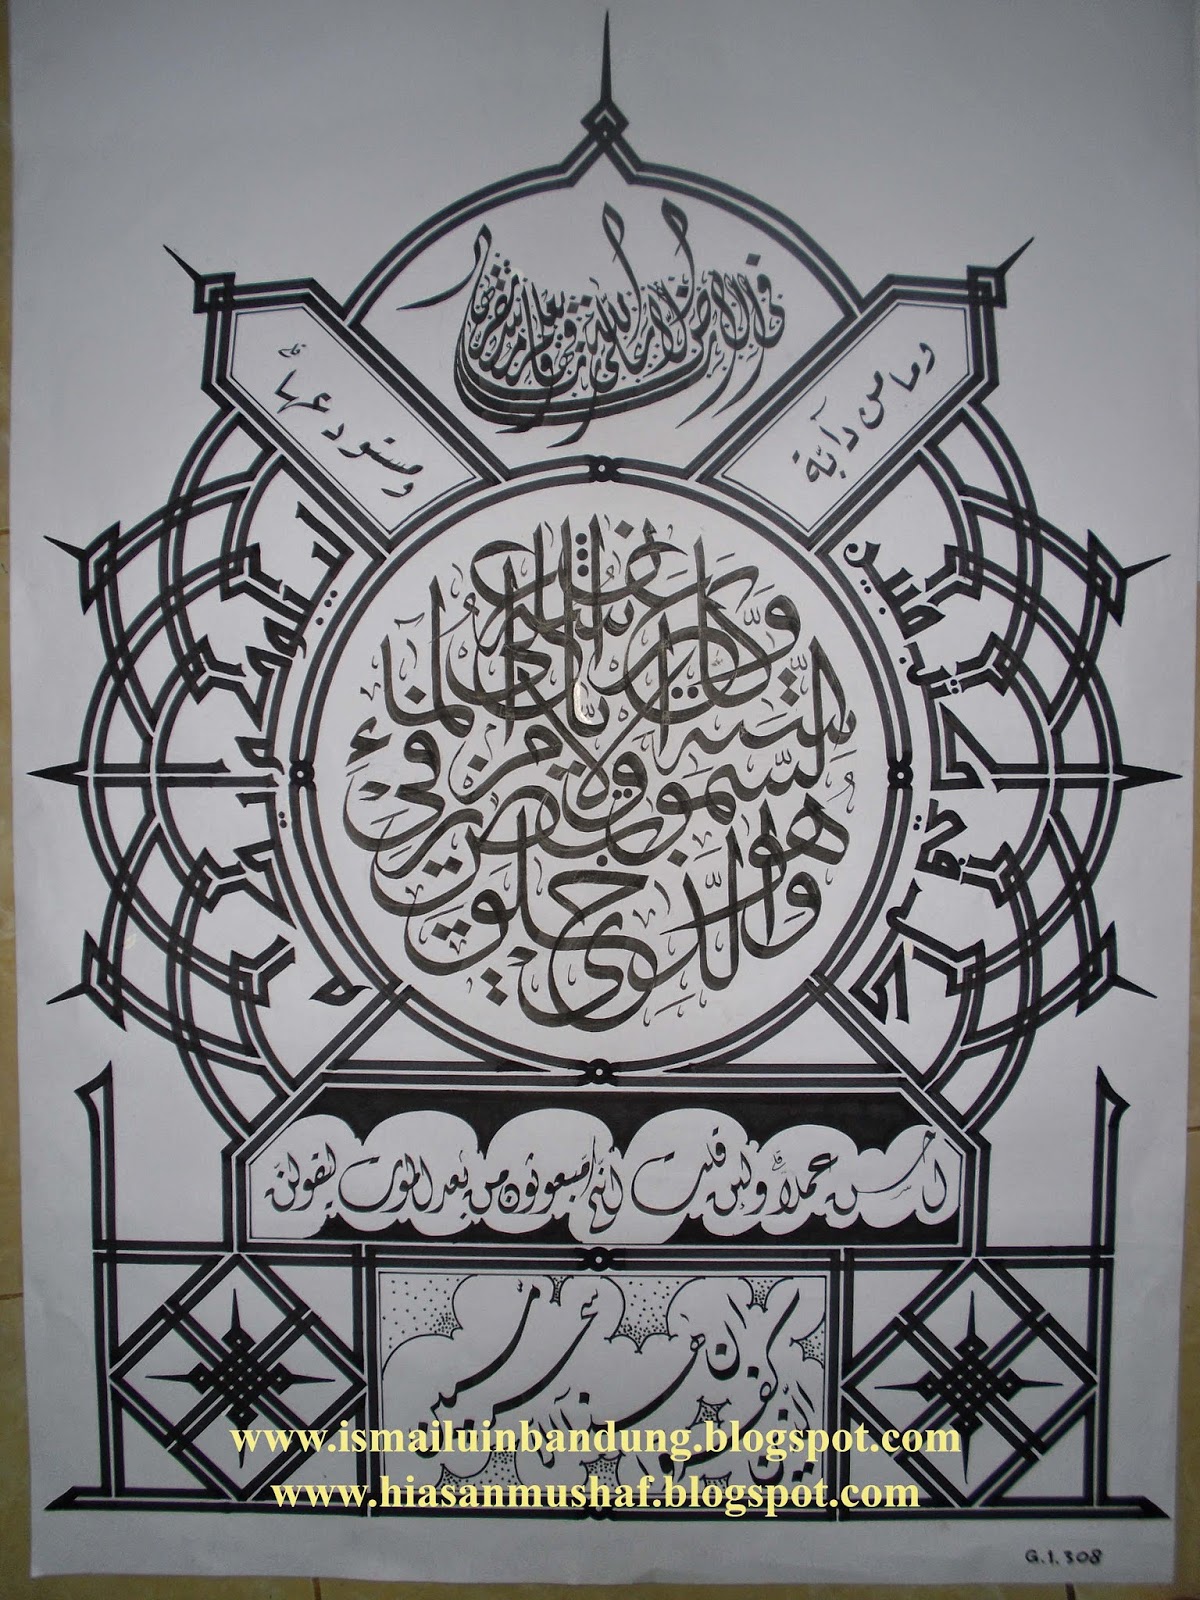 وما من دآبة
في الارض الا على الله رزقها ويعلم مستقرها
ومستودعها
كل في كتب مبين
وهو الذي خلق السموت والارض في ستة ايام وكان عرشه على الماء
احسن عملا ولئن قلت انكم مبعوثون من بعد الموت ليقولن
الذين كفروا ان هذا الا سحر مبين
www.ismailuinbandung.blogspot.com
www.hiasanmushaf.blogspot.com
G.1.308